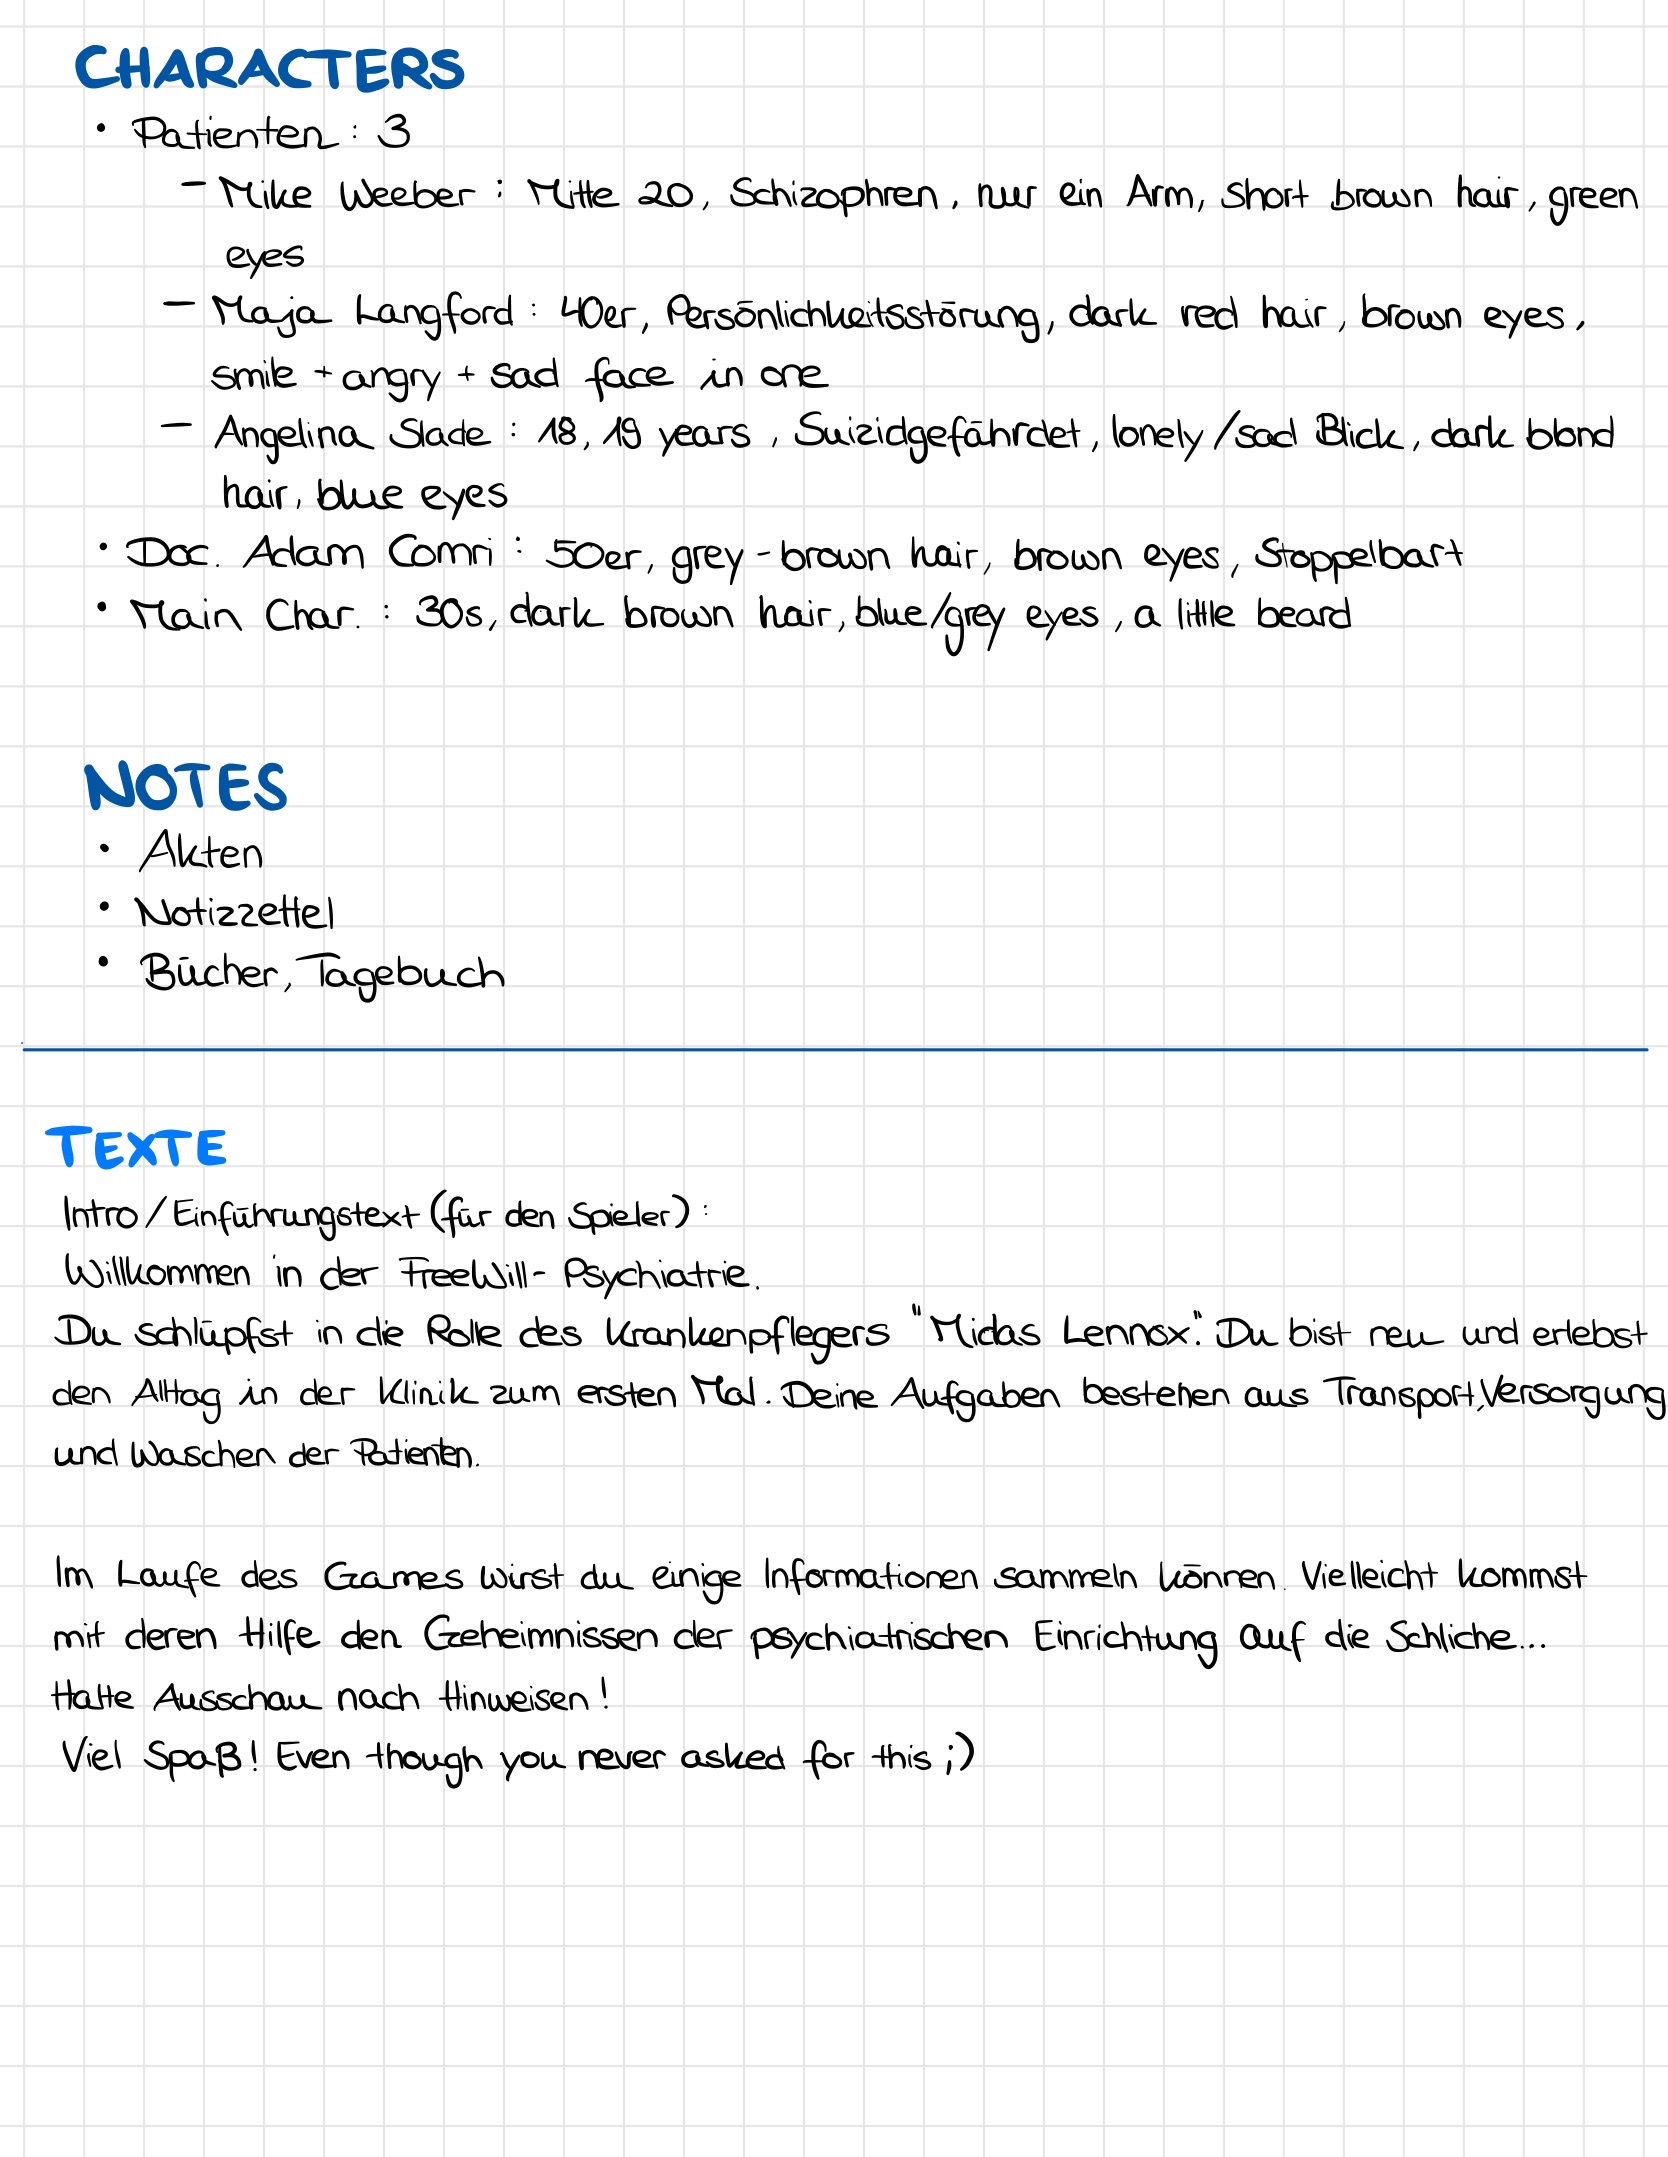 CHARACTERS
• Patienten : 3
– Mike Weeber : Mitte 20, Schizophren, nur ein Arm, short brown hair, green
eyes
– Maja Langford : 40er, Persönlichkeitsstörung, dark red hair, brown eyes,
smile + angry + sad face in one
– Angelina Slade : 18, 19 years, Suizidgefährdet, lonely/sad Blick, dark blond
hair, blue eyes
• Doc. Adam Comri : 50er, grey-brown hair, brown eyes, Stoppelbart
• Main Char. : 30s, dark brown hair, blue/grey eyes, a little beard
NOTES
• Akten
• Notizzettel
• Bücher, Tagebuch
TEXTE
Intro/Einführungstext (für den Spieler) :
Willkommen in der FreeWill-Psychiatrie.
Du schlüpfst in die Rolle des Krankenpflegers "Midas Lennox". Du bist neu und erlebst
den Alltag in der Klinik zum ersten Mal. Deine Aufgaben bestehen aus Transport, Versorgung
und Waschen der Patienten.
Im Laufe des Games wirst du einige Informationen sammeln können. Vielleicht kommst
mit deren Hilfe den Geheimnissen der psychiatrischen Einrichtung auf die Schliche...
Halte Ausschau nach Hinweisen!
Viel Spaß! Even though you never asked for this ;)